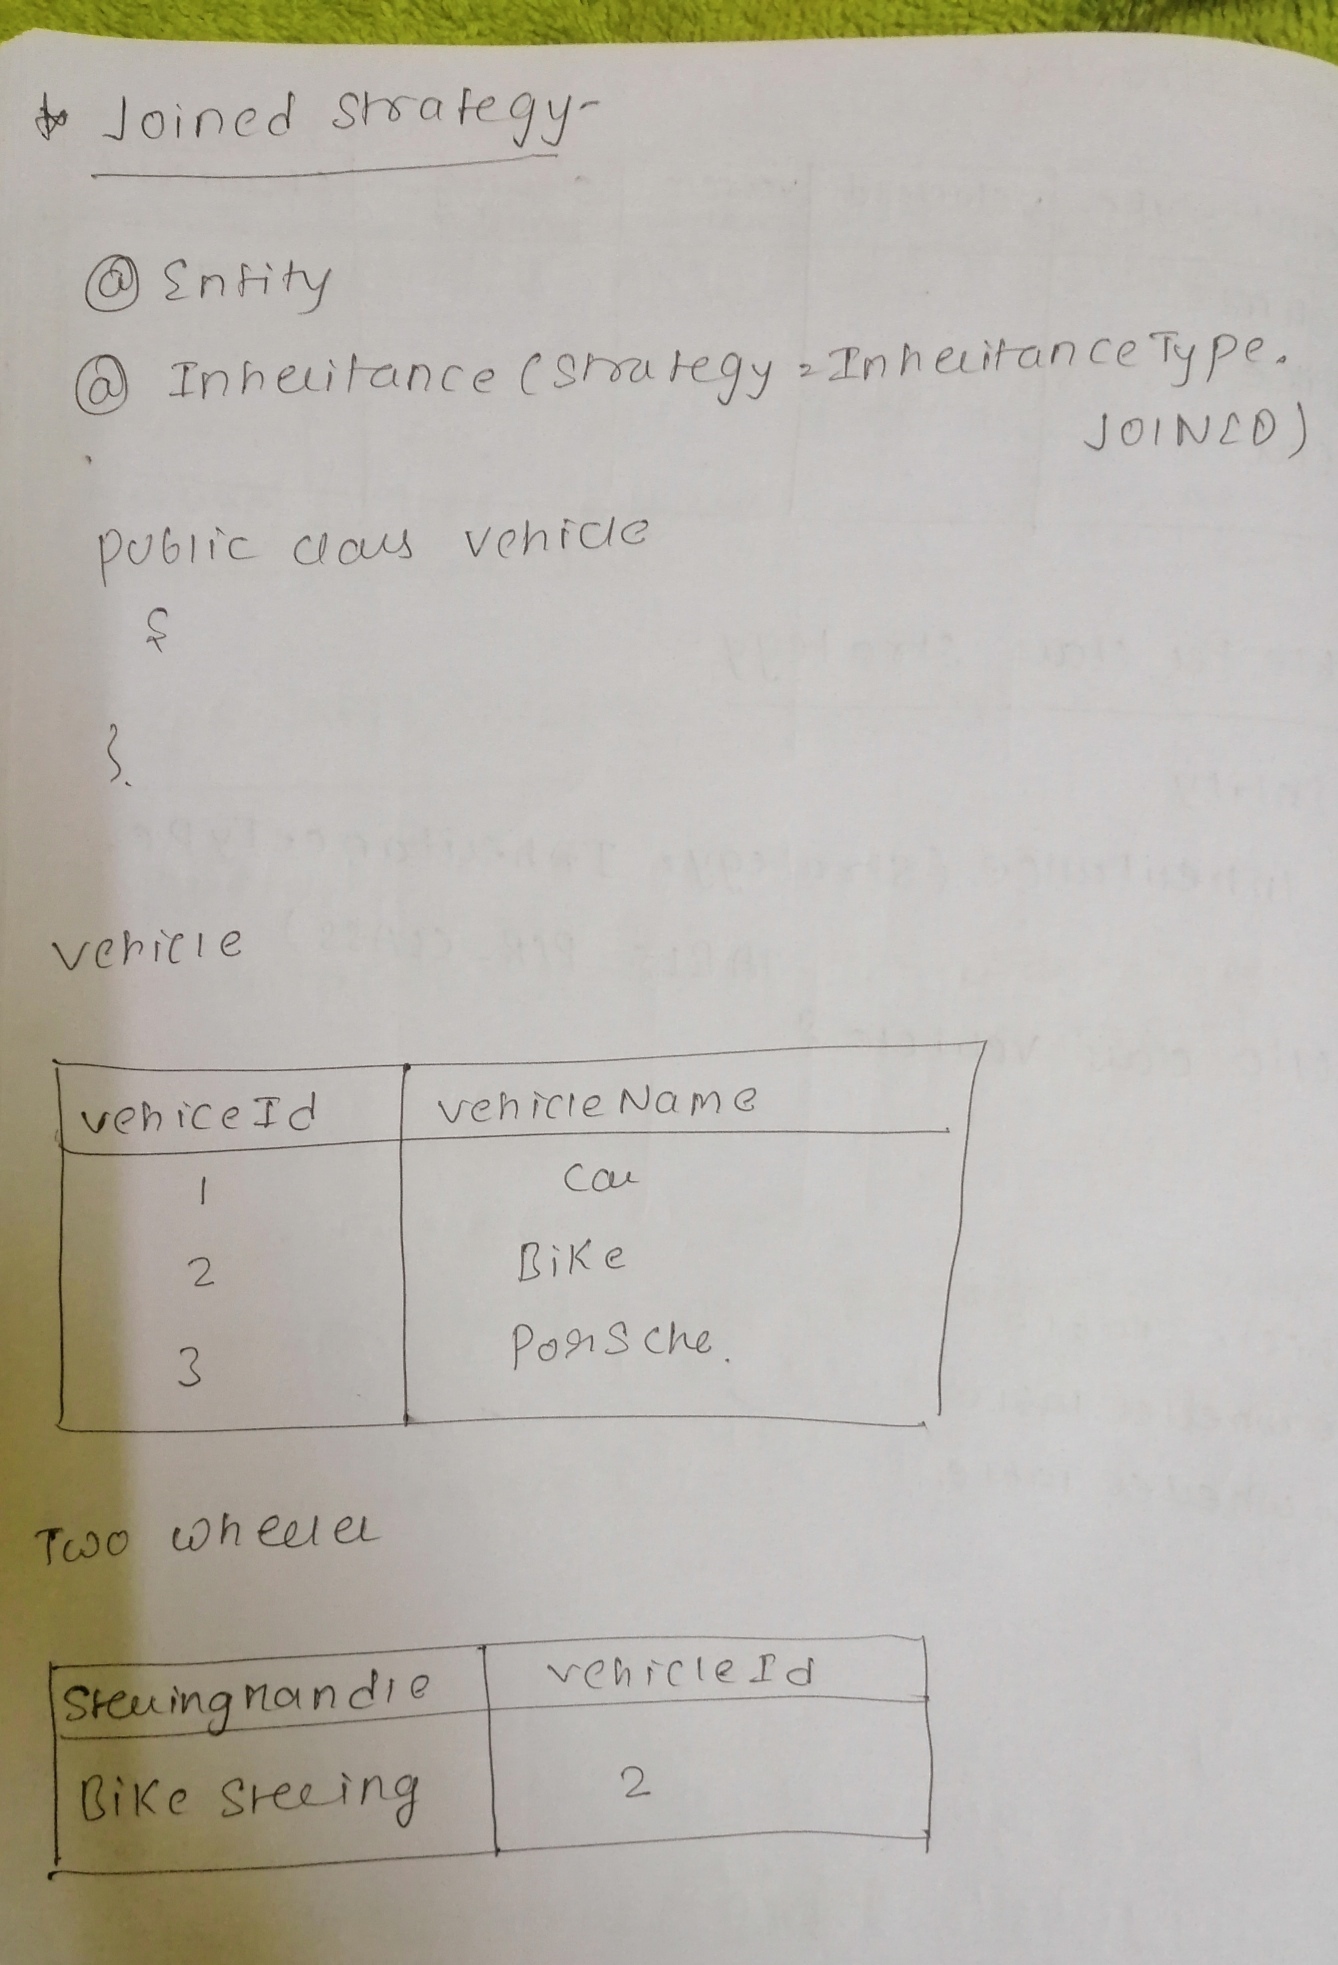 * Joined strategy-
@ Entity
@ Inheritance (strategy = InheritanceType.
JOINED)
public class vehicle
{
}.
vehicle
vehiceId vehicleName
1 Car
2 Bike
3 Porsche.
Two wheeler
Steeringhandle vehicleId
Bike Steering 2